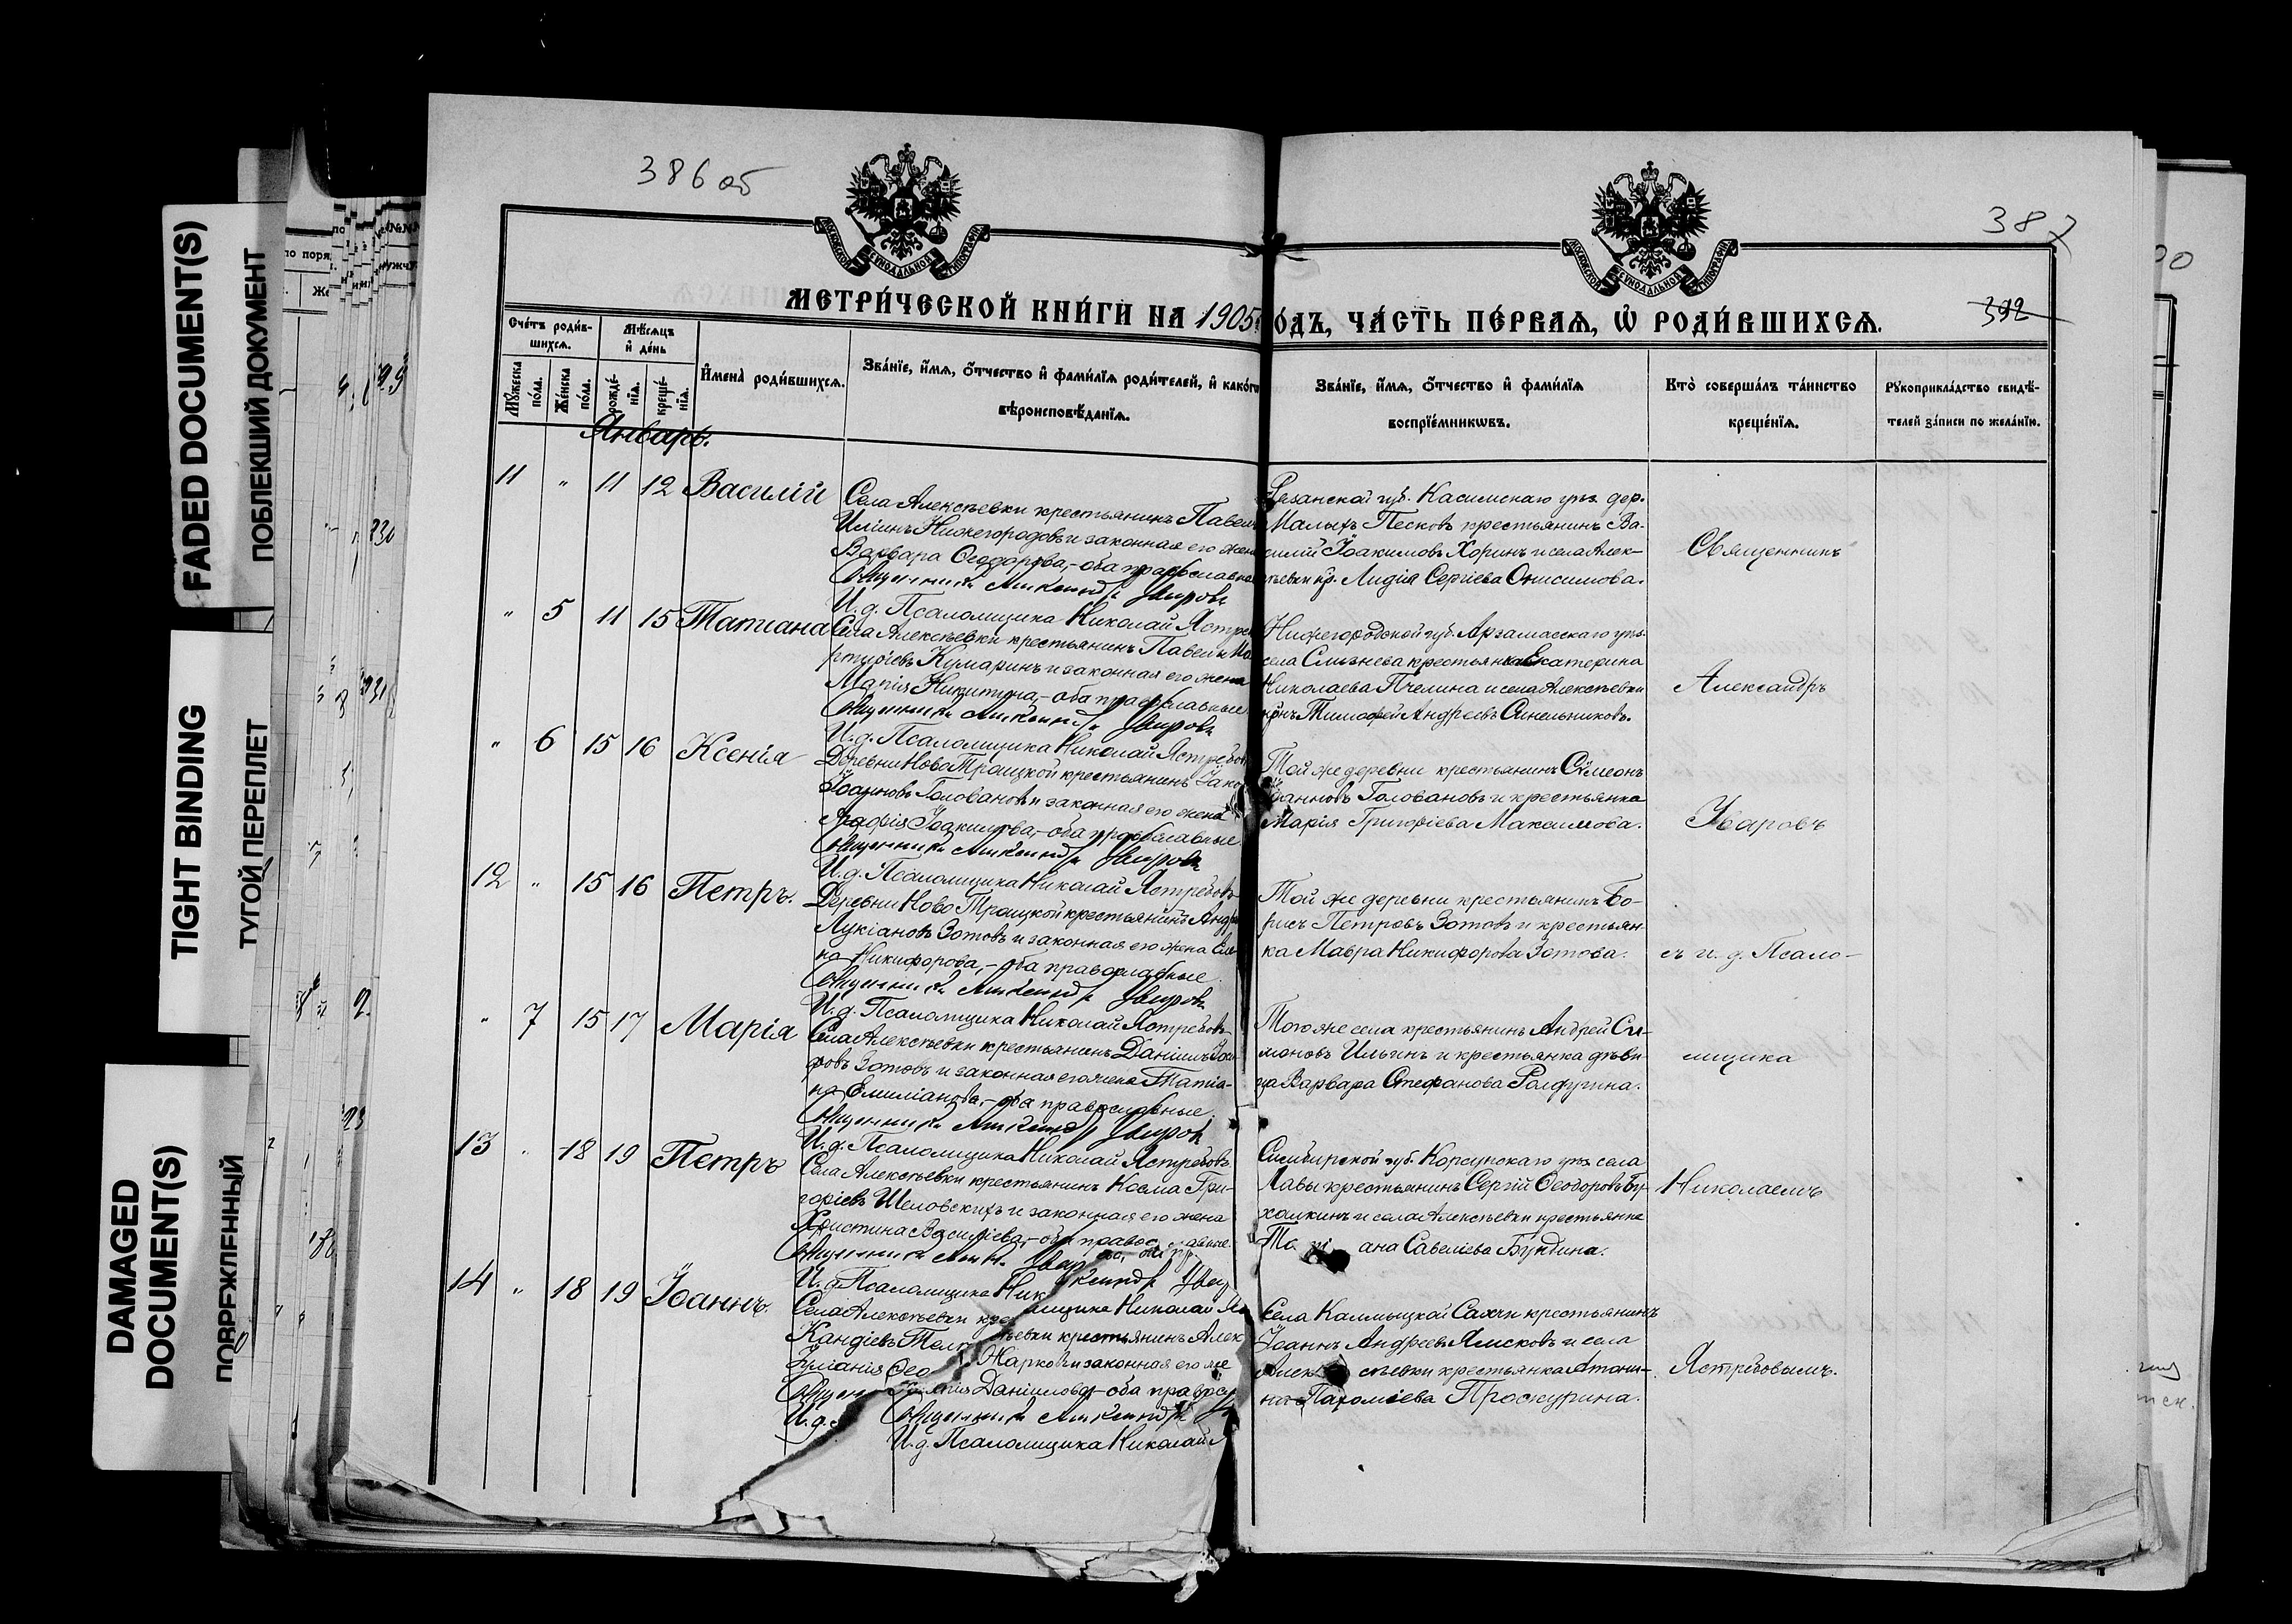 FADED DOCUMENT(S)
ПОБЛЕКШИЙ ДОКУМЕНТ
TIGHT BINDING
ТУГОЙ ПЕРЕПЛЕТ
DAMAGED DOCUMENT(S)
386 об
387
392
МОСКОВСКОЙ СѴНОДАЛЬНОЙ ТИПОГРАФІИ
МОСКОВСКОЙ СѴНОДАЛЬНОЙ ТИПОГРАФІИ
МЕТРИ́ЧЕСКОЙ КНИ́ГИ НА 1905 ОДЪ, ЧА́СТЬ ПЕ́РВАѦ, Ѡ РОДИ́ВШИХСѦ.
Сче́тъ роди́в-
шихсѧ.
Мѣ́сѧцъ
и҆ де́нь
Мꙋ́жеска по́ла.
Же́нска по́ла.
рожде́-нїѧ.
креще́-нїѧ.
И҆мена̀ роди́вшихсѧ.
Зва́нїе, и҆́мѧ, ѻ҆́тчество и҆ фами́лїѧ роди́телей, и҆ како́гѡ
вѣроисповѣ́данїѧ.
Зва́нїе, и҆́мѧ, ѻ҆́тчество и҆ фами́лїѧ
воспрїе́мникѡвъ.
Кто̀ соверша́лъ та́инство
креще́нїѧ.
Рꙋкоприкла́дство свидѣ́-
телей за́писи по жела́нїю.
Январь.
11 " 11 12 Василій
Села Алексѣевки крестьянинъ Павелъ
Иліинъ Нижегородовъ и законная его жена
Варвара Ѳеодорова, - оба православные
Священникъ Александръ Уваровъ
И. д. Псаломщика Николай Ястреб
Рязанской губ. Касимскаго уѣз. дер.
Малыхъ Песковъ крестьянинъ Ва-
силій Іоакимовъ Хоринъ и села Алек-
сѣевки кр. Лидія Сергіева Онисимова.
Священникъ
" 5 11 15 Татиана
Села Алексѣевки крестьянинъ Павелъ Ма
ртиріевъ Кумаринъ и законная его жена
Марія Никитина, - оба православные
Священникъ Александръ Уваровъ
И. д. Псаломщика Николай Ястребов
Нижегородской губ. Арзамасскаго уѣз.
села крестьянка Екатерина
Николаева Пчелина и села Алексѣевки
кр-нъ Тимофей Андреевъ Синельниковъ.
Александръ
" 6 15 16 Ксенія
Деревни Ново Троицкой крестьянинъ Іако
Іоанновъ Головановъ и законная его жена
Іоакимова, - оба православные
Священникъ Александръ Уваровъ
И. д. Псаломщика Николай Ястребовъ
Той же деревни крестьянинъ Сѵмеонъ
Іоанновъ Головановъ и крестьянка
Марія Григоріева Максимова.
Уваровъ
12 " 15 16 Петръ.
Деревни Ново Троицкой крестьянинъ Андр
Лукіановъ Зотовъ и законная его жена Еле
на Никифорова, - оба православные
Священникъ Александръ Уваровъ
И. д. Псаломщика Николай Ястребовъ
Той же деревни крестьянинъ Бо-
рисъ Петровъ Зотовъ и крестьян-
ка Мавра Никифорова Зотова.
съ и. д. Псало-
" 7 15 17 Марія
Села Алексѣевки крестьянинъ Даніилъ
Зотовъ и законная его жена Татіа-
на Емиліанова, - оба православные.
Священникъ Александръ Уваровъ
И. д. Псаломщика Николай Ястребовъ.
Того же села крестьянинъ Андрей Си-
моновъ Ильинъ и крестьянка дѣви-
ца Варвара Стефанова Ралдугина.
мщика
13 " 18 19 Петръ
Села Алексѣевки крестьянинъ Косма Гри-
горіевъ Шеловскихъ и законная его жена
Христина Василіева, - оба православные.
Священникъ
И. д. Псаломщика Ник
Симбирской губ. Корсунскаго уѣз. села
Лавы крестьянинъ Сергій Ѳеодоровъ
и села Алексѣевки крестьянка
Савеліева Бундина.
Николаемъ
14 " 18 19 Іоаннъ.
Села Алексѣевки
сѣевки крестьянинъ Алек
Жарковъ и законная его же
Даніилова, - оба правосл
Священникъ Александръ
И. д. Псаломщика Николай
Села Калмыцкой Сахчи крестьянинъ
Іоаннъ Андреевъ Ямсковъ и села
Алексѣевки крестьянка Антони-
на Проскурина.
Ястребовымъ.